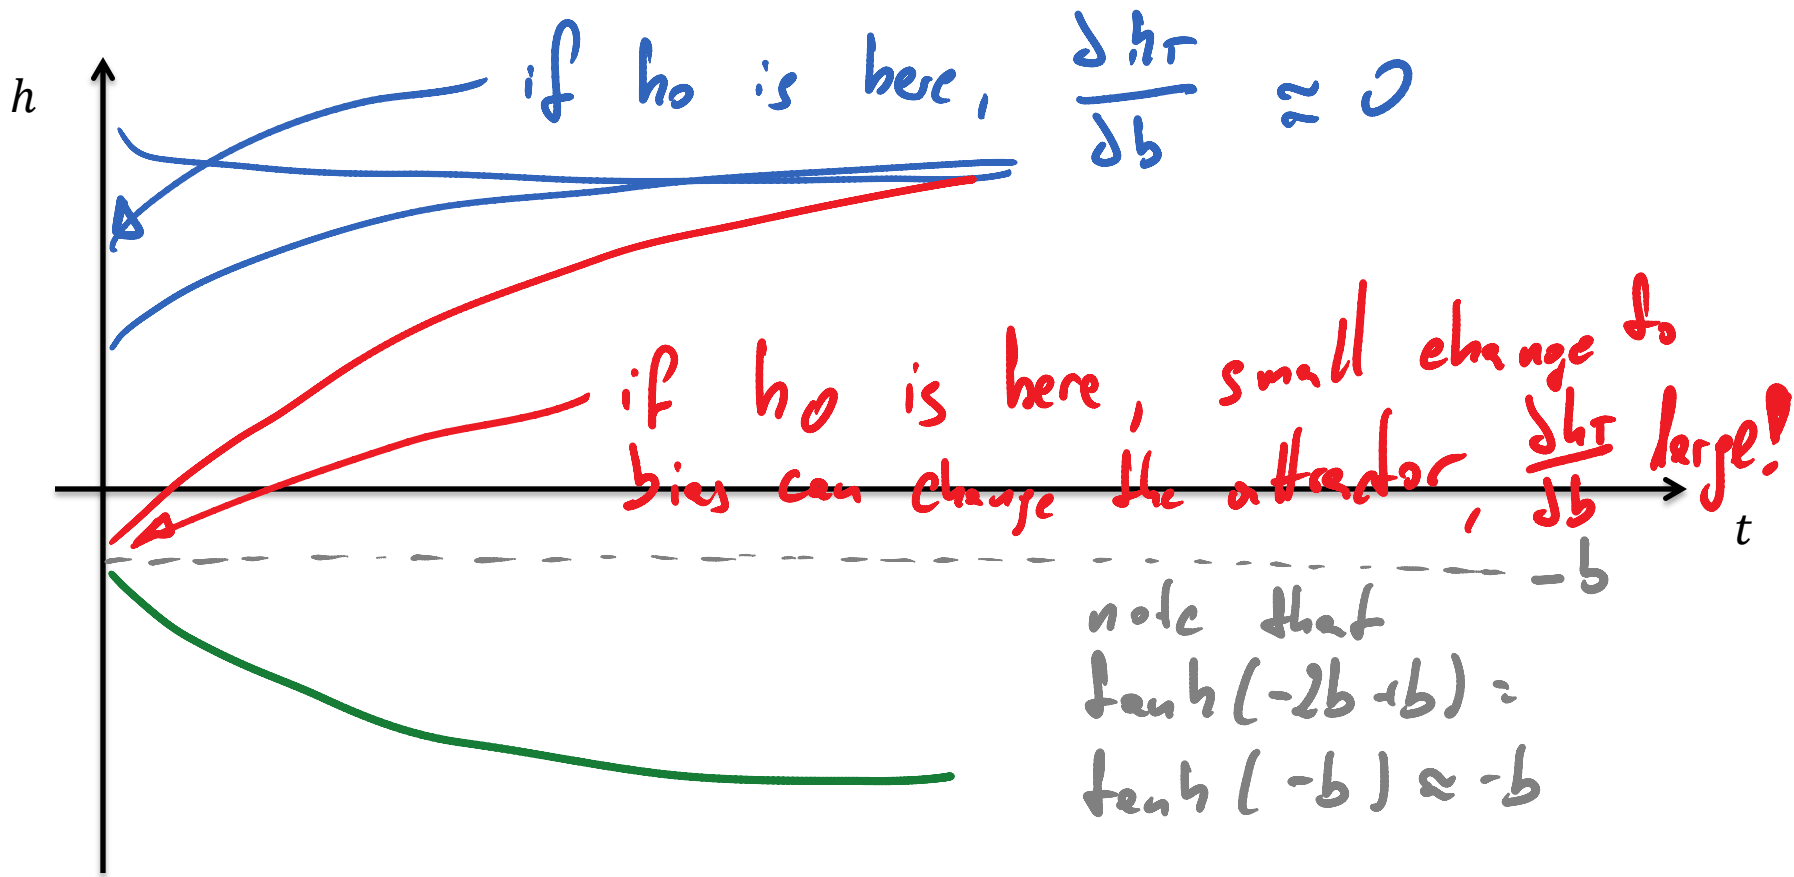 h
if h₀ is here, ∂h_T/∂b ≈ 0
if h₀ is here, small change to
bias can change the attractor, ∂h_T/∂b large!
t
-b
note that
tanh(-2b+b) =
tanh(-b) ≈ -b